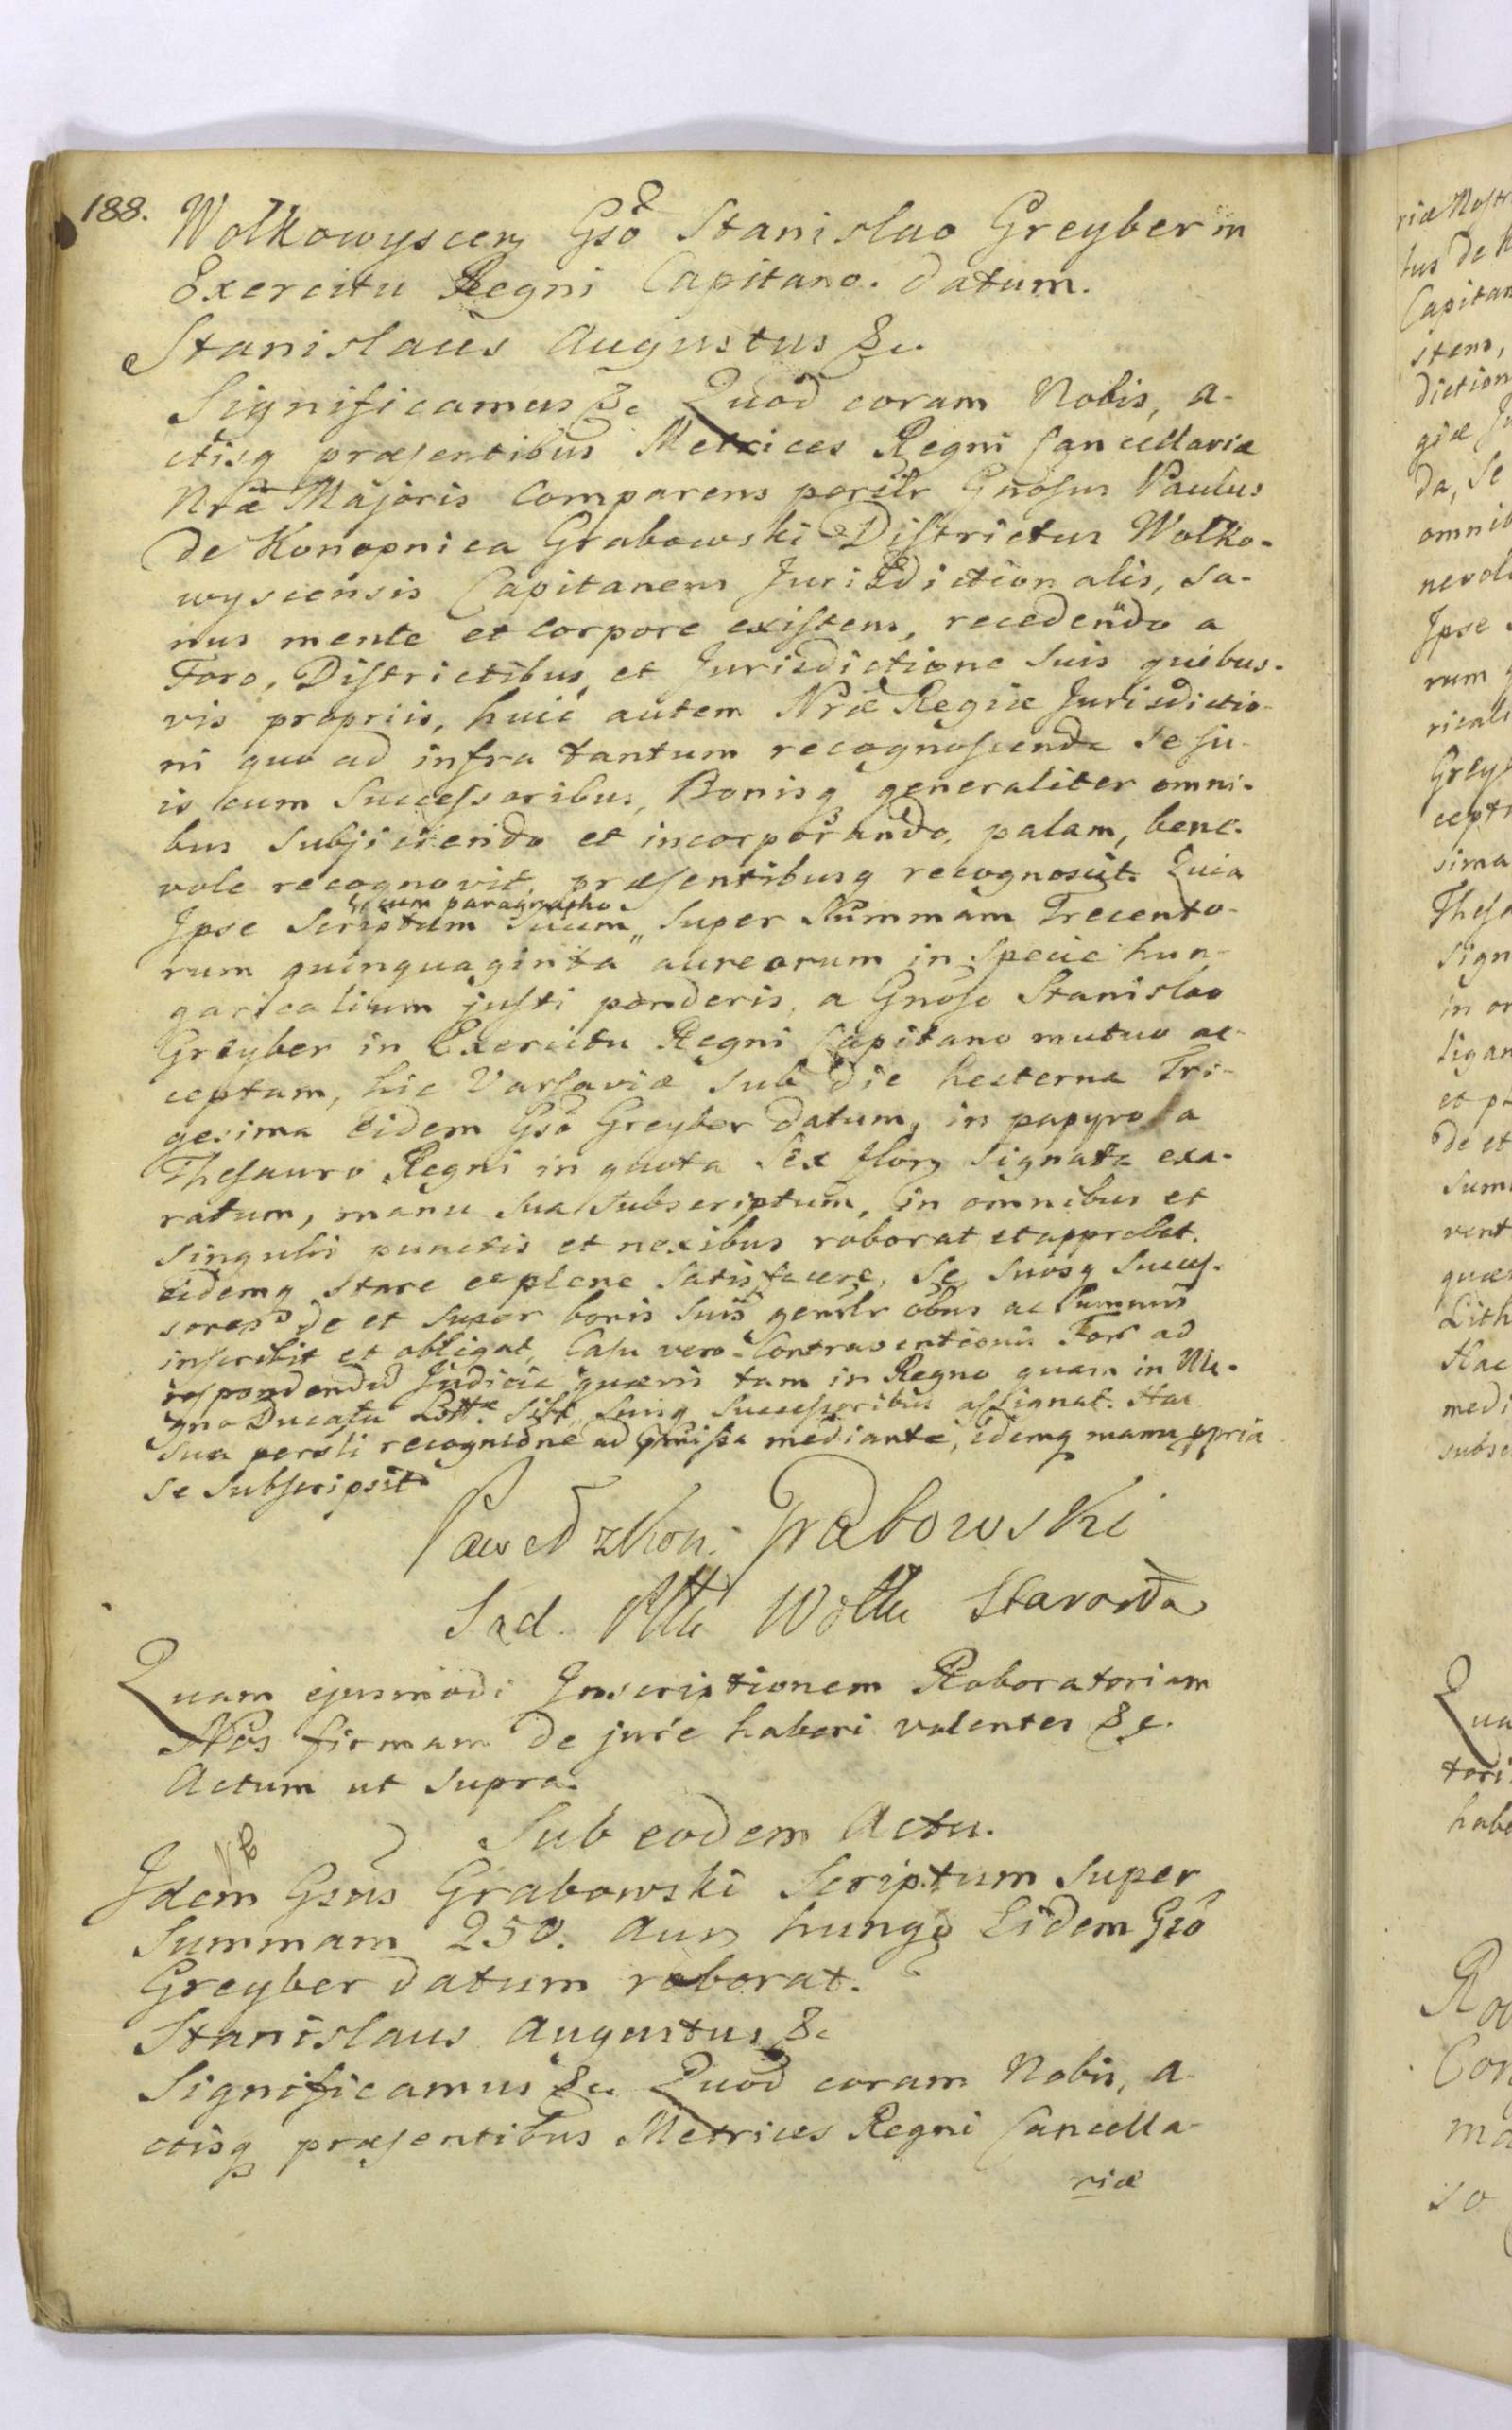 188.
Wolkowyscen Gso Stanislao Greyber in
Exercitu Regni Capitano. datum.
Stanislaus Augustus &c.
Significamus &c Quod coram Nobis, a-
ctisq præsentibus Metrices Regni Cancellariæ
Nræ Majoris Comparens psnltr Gnosus Paulus
de Konopnica Grabowski Districtus Wolko-
wysciensis Capitaneus Jurisdictionalis, sa-
nus mente et corpore existens, recedendo a
Foro, Districtibus et Jurisdictione suis quibus-
vis propriis, huic autem Nræ Regiæ Jurisdictio-
ni quo ad infra tantum recognoscenda se su-
is cum Successoribus, Bonisq generaliter omni-
bus subjiciendo et incorporando, palam, bene-
vole recognovit, præsentibusq recognoscit. Quia
cum paragrapho
Ipse Scriptum suum „ super Summam Trecento-
rum quinquaginta aureorum in specie hun-
garicalium justi ponderis, a Gnoso Stanislao
Greyber in Exercitu Regni Capitano mutuo ac-
ceptam, hic Varsaviæ sub die hesterna Tri-
gesima Eidem Gso Greyber datum, in papyro a
Thesauro Regni in quota sex flor signata exa-
ratum, manu sua subscriptum, in omnibus et
singulis punctis et nexibus roborat et approbat.
Eidemq stare et plene satisfacere, se suosq succes-
sores de et super bonis suis gnrlr obus ac summis
inscribit et obligat, Casu vero Contraventionis Foro ad
respondendu Judicia quævis tam in Regno quam in Ma-
gno Ducatu Litt. sibi suisq Successoribus assignat. Hac
sua persli recognidne ad præmissa mediante, idemq manu ppria
se subscripsit
Paweł z Kon. Grabowski
Sad. Ptti Wołk Starosta
Quam ejusmodi Inscriptionem Roboratoriam
Nos firmam de jure haberi volentes &c.
Actum ut supra.
Sub eodem Actu.
Idem Gsus Grabowski Scriptum super
Summam 250. Aur hung Eidem Gso
Greyber datum roborat.
Stanislaus Augustus &c
Significamus &c. Quod coram Nobis, a-
ctisq præsentibus Metrices Regni Cancella-
riæ